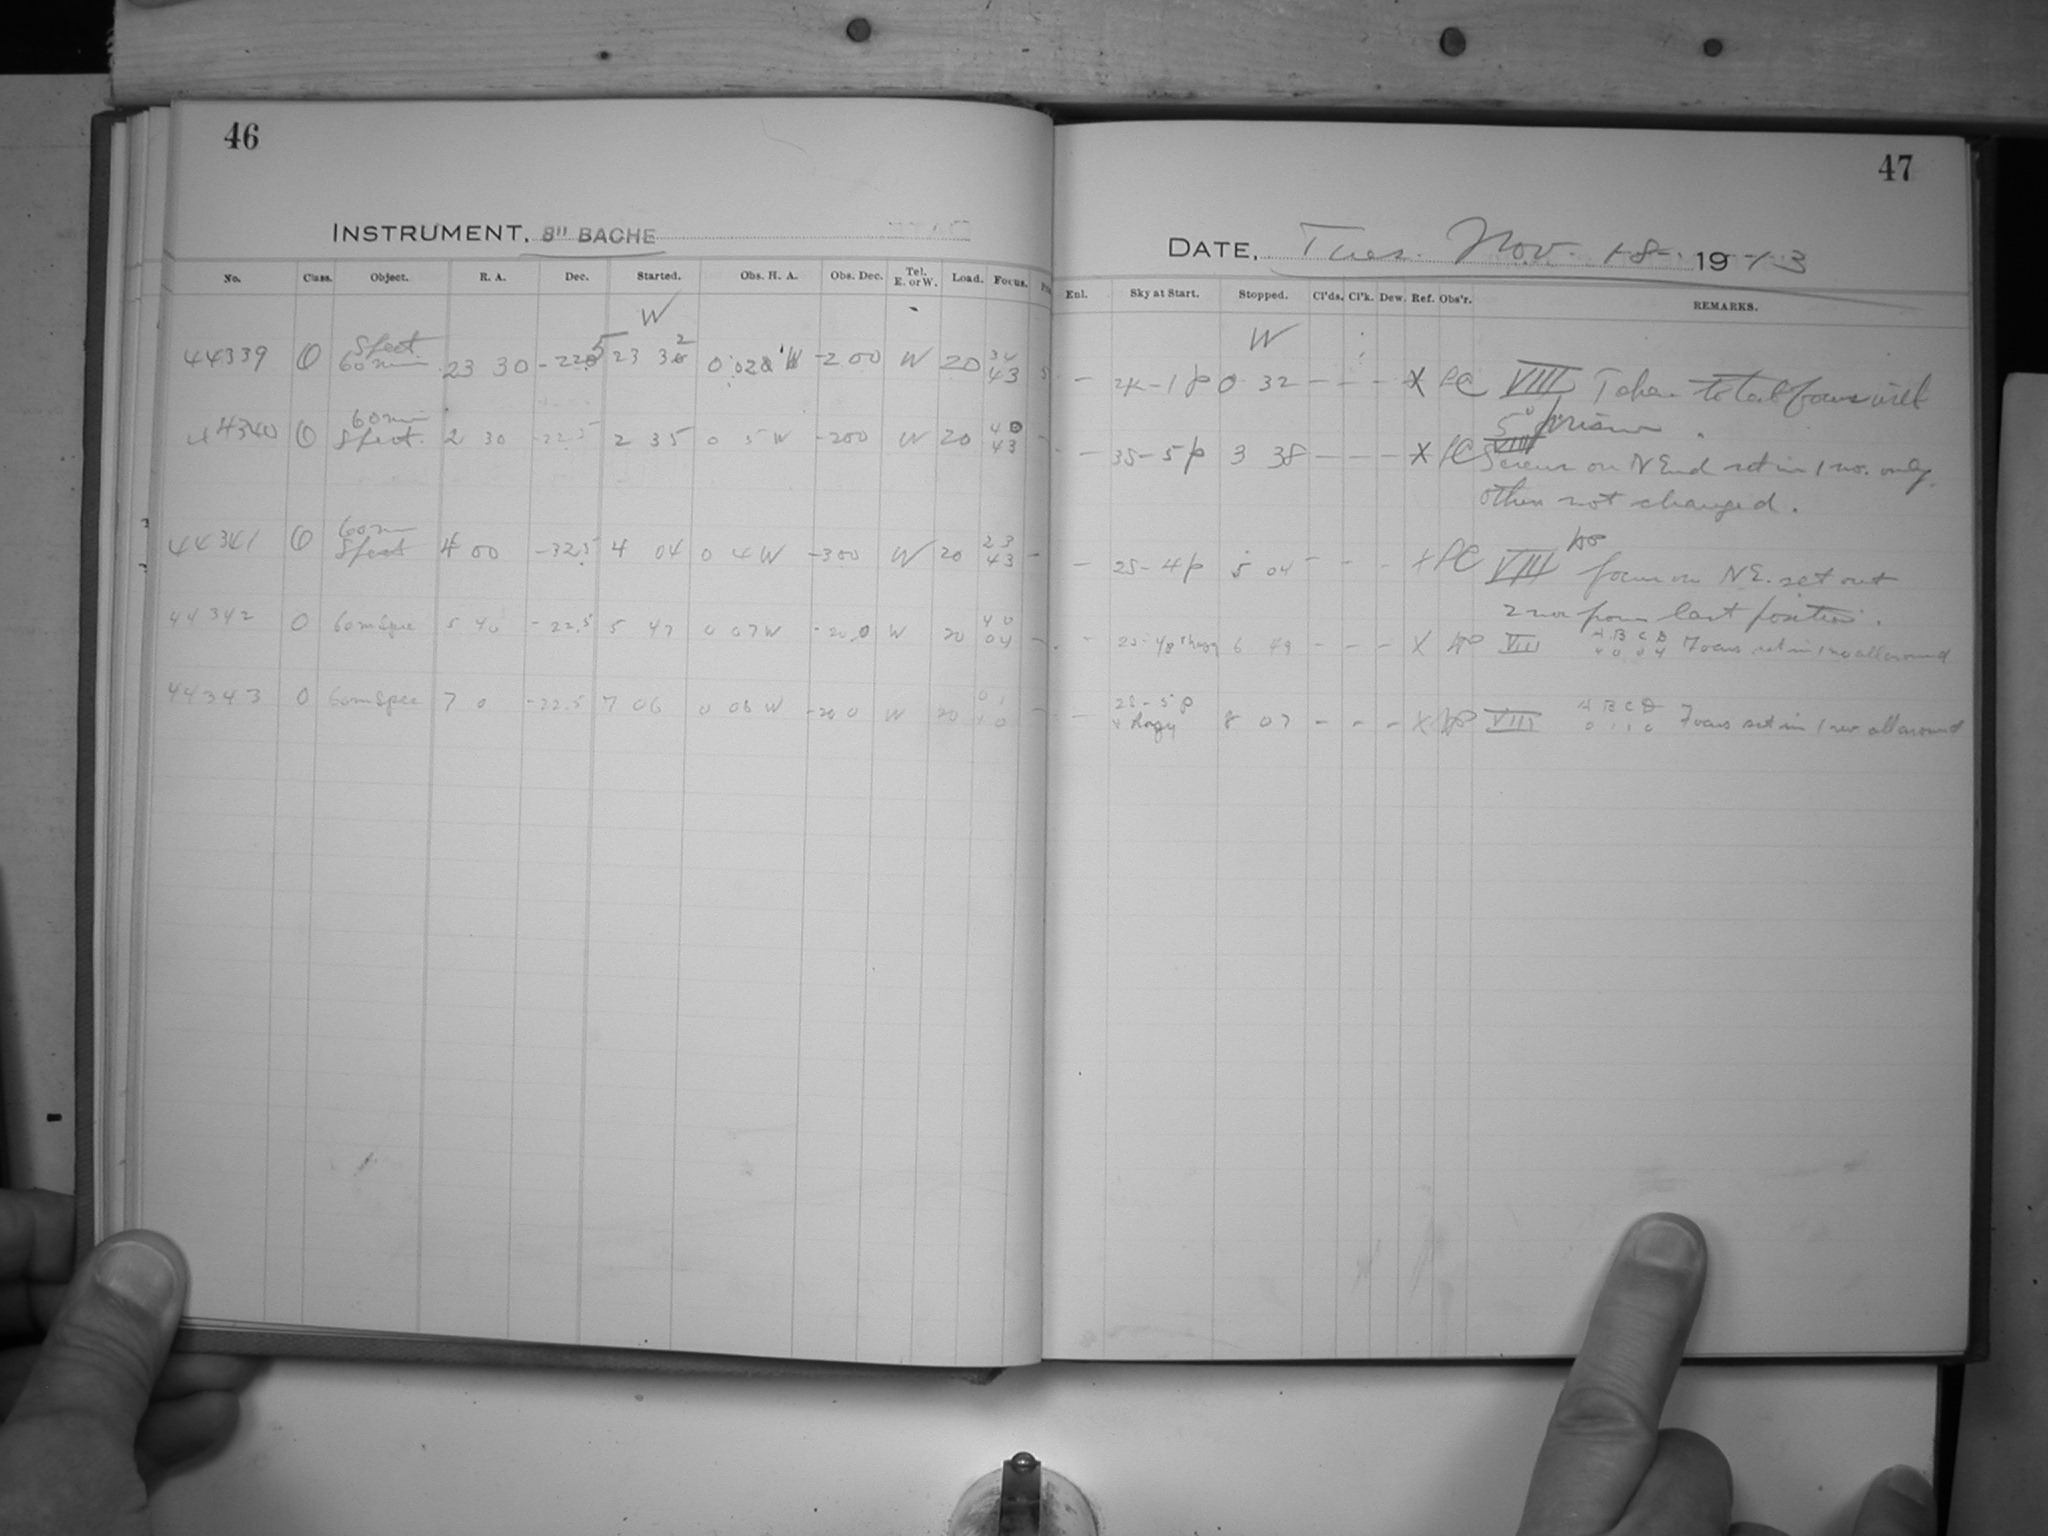 46
INSTRUMENT, 8" BACHE
No. Class. Object. R. A. Dec. Started. Obs. H. A. Obs. Dec. Tel. E. or W. Load. Focus.
W
44339 Spect. 60 min 23 30 -22.5 23 32 W -200 W 20 43
44340 60 min Spect. 2 30 -22.5 2 35 0 5W -200 W 20 40 43
44341 60 min Spect 4 00 -32.5 4 04 0 4W -300 W 20 23 43 -
44342 0 60m Spec 5 40 -22.5 5 47 0 07W -20.0 W 20 40 04 -
44343 0 60m Spec 7 0 -22.5 7 06 0 06 W -20 0 W 20 01 10 -
47
DATE, Tues. Nov. 18 1913
Enl. Sky at Start. Stopped. Cl'ds. Cl'k. Dew. Ref. Obs'r. REMARKS.
W
- 2K-1p 0 32 - - - X LC VIII Taken to test focus with
5° prism.
- 3S-5p 3 38 - - - X LC Screw on N End set in 1 no. only
others not changed.
- 2S-4p 5 04 - - - X LC VIII focus on NE. set out
2 nos from last position.
- 2S-4p 6 49 - - - X VIII A B C D 4 0 0 4 Focus set in 1 no all around
- 2S-5p & Hazy 8 07 - - - X VIII A B C D 0 1 1 0 Focus set in 1 rev all around